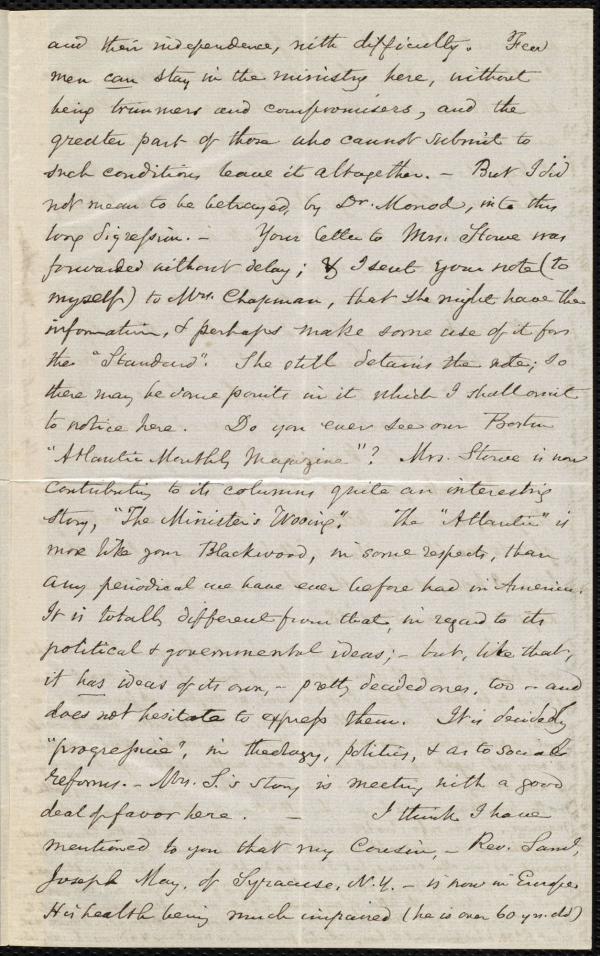 and their independence, with difficulty. Few
men can stay in the ministry here, without
being trimmers and compromisers, and the
greater part of those who cannot submit to
such conditions leave it altogether. – But I did
not mean to be betrayed, by Dr. Monod, into this
long digression. – Your letter to Mrs. Stowe was
forwarded without delay; & I sent your note (to
myself) to Mrs. Chapman, that she might have the
information, & perhaps make some use of it for
the "Standard". She still detains the note; so
there may be some points in it which I shall omit
to notice here. Do you ever see our Boston
"Atlantic Monthly Magazine"? Mrs. Stowe is now
contributing to its columns quite an interesting
story, "The Minister's Wooing". The "Atlantic" is
more like your Blackwood, in some respects, than
any periodical we have ever before had in America.
It is totally different from that, in regard to its
political & governmental ideas; – but, like that,
it has ideas of its own, – pretty decided ones, too – and
does not hesitate to express them. It is decidedly
"progressive", in theology, politics, & as to social
reforms. – Mrs. S.'s story is meeting with a good
deal of favor here. – I think I have
mentioned to you that my Cousin, – Rev. Saml.
Joseph May, of Syracuse, N.Y. – is now in Europe
His health being much impaired (he is over 60 yrs. old)